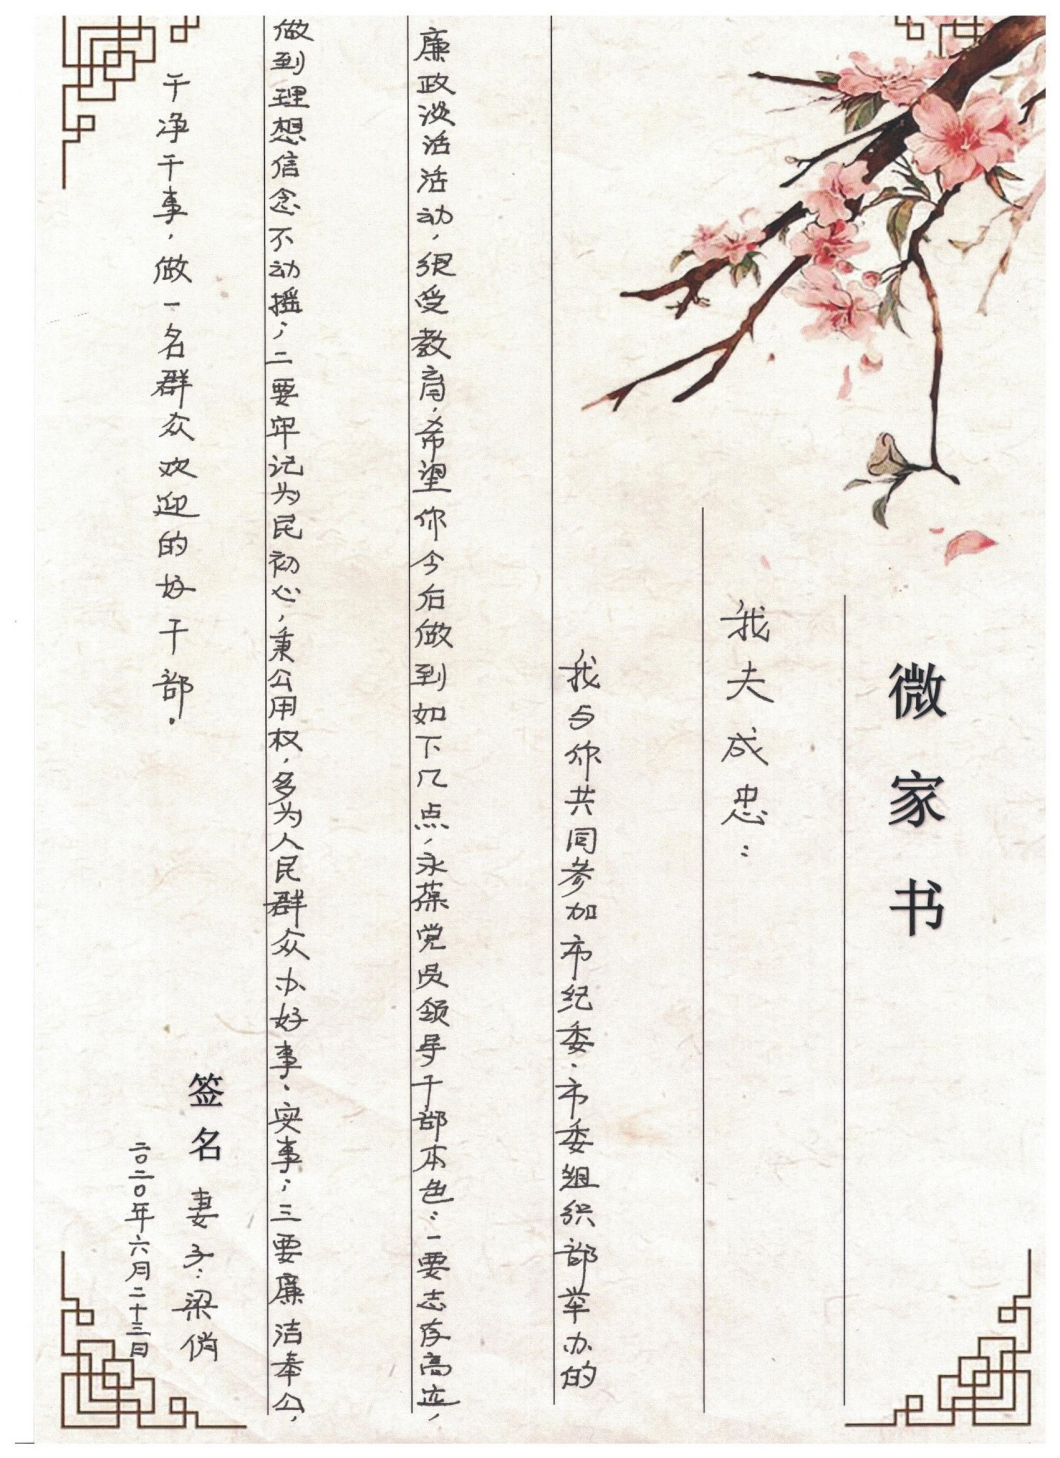 微家书
我夫成忠：
我与你共同参加市纪委、市委组织部举办的
廉政谈话活动，很受教育，希望你今后做到如下几点，永葆党员领导干部本色：一要志存高远，
做到理想信念不动摇；二要牢记为民初心，秉公用权，多为人民群众办好事、实事；三要廉洁奉公，
干净干事，做一名群众欢迎的好干部。
签名 妻子：梁俏
二〇二〇年六月二十三日